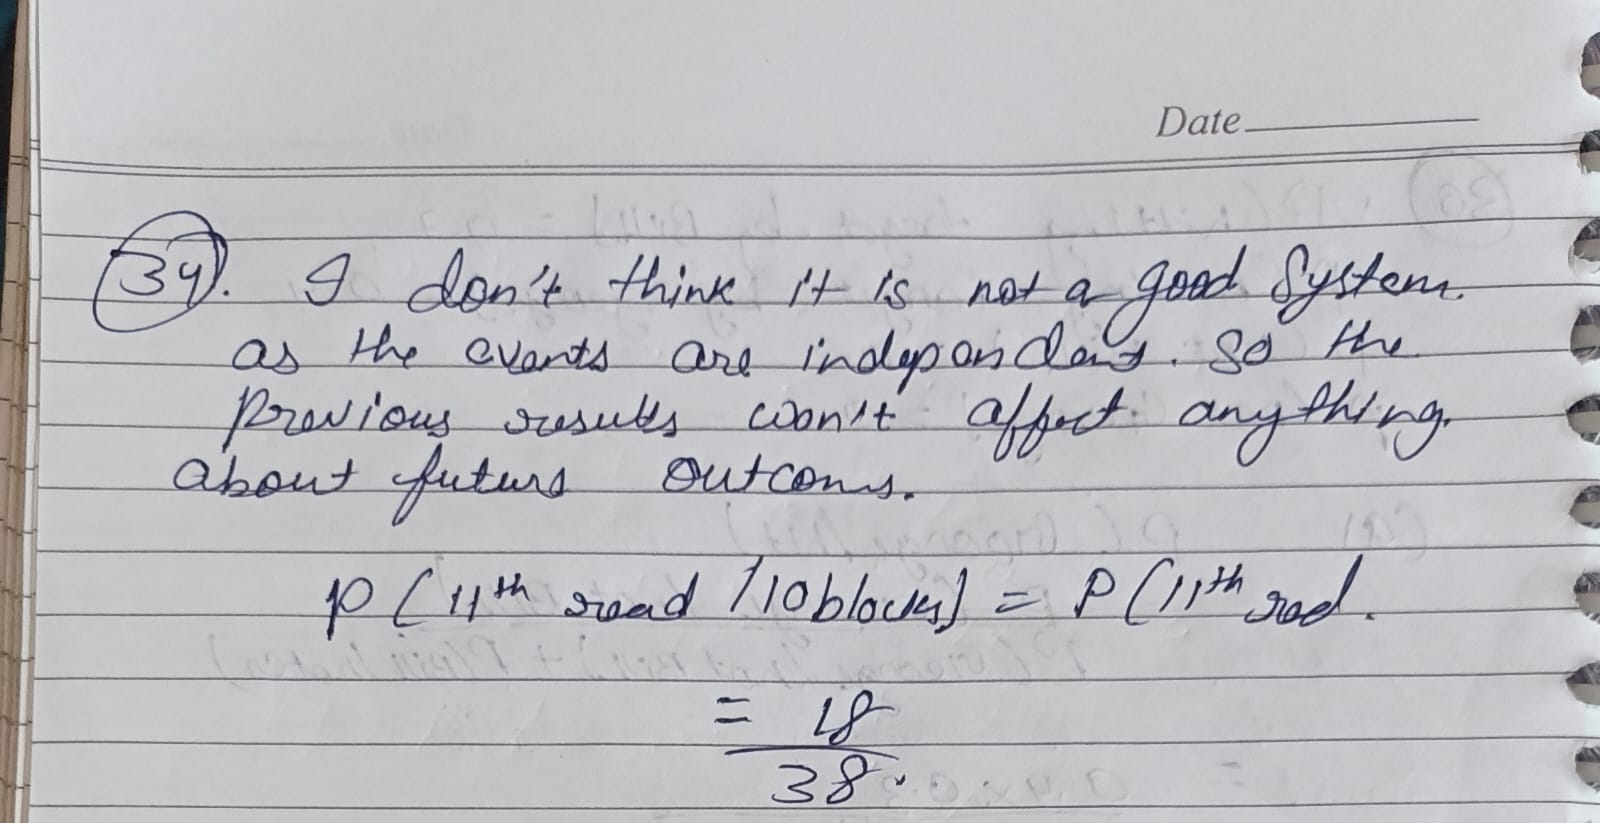 Date
34. I don't think it is not a good System.
as the events are independent. So the
previous results won't affect anything.
about future outcoms.
P(11th read /10blocks) = P(11th red.
= 18
38.